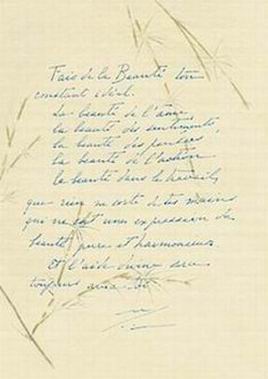 Fais de la Beauté ton
constant idéal.
La beauté de l'âme
la beauté des sentiments,
la beauté des pensées
la beauté de l'action
la beauté dans le travail,
que rien ne sorte de tes mains
qui ne soit une expression de
beauté pure et harmonieuse
Et l'aide divine sera
toujours avec toi